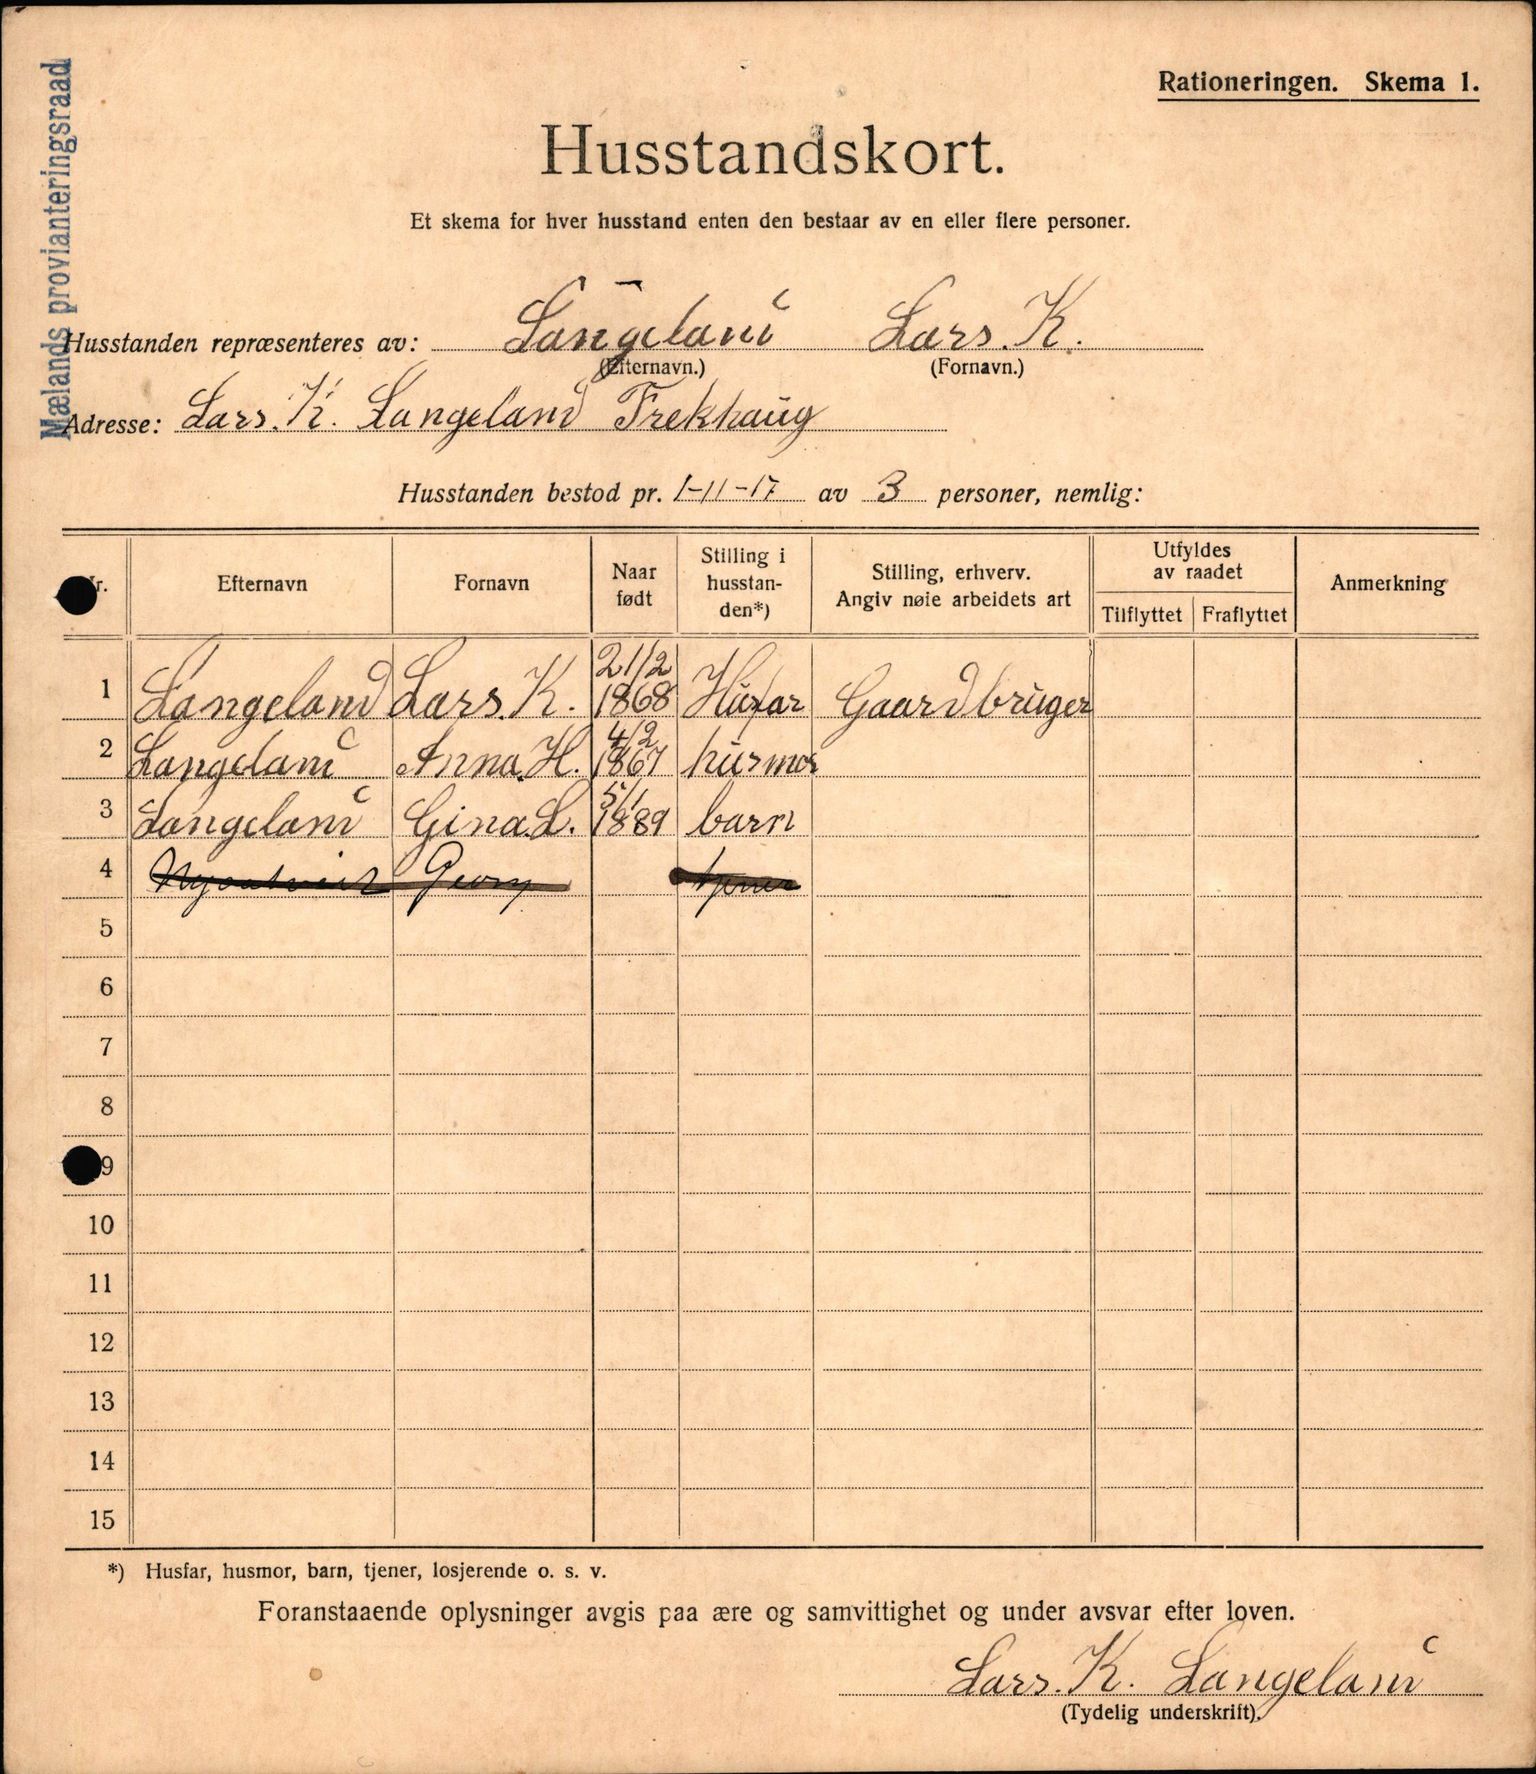 Mælands provianteringsraad
Rationeringen. Skema 1.
Husstandskort.
Et skema for hver husstand enten den bestaar av en eller flere personer.
Husstanden repræsenteres av: Langeland Lars. K.
(Efternavn.) (Fornavn.)
Adresse: Lars. K. Langeland Frekhaug
Husstanden bestod pr. 1-11-17 av 3 personer, nemlig:
Nr. Efternavn Fornavn Naar født Stilling i husstan-den*) Stilling, erhverv. Angiv nøie arbeidets art Utfyldes av raadet Tilflyttet Fraflyttet Anmerkning
1 Langeland Lars. K. 21/2 1868 Husfar Gaardbruger
2 Langeland Anna. H. 4/2 1867 husmor
3 Langeland Gina. L. 5/1 1889 barn
4 Georg tjener
5
6
7
8
9
10
11
12
13
14
15
*) Husfar, husmor, barn, tjener, losjerende o. s. v.
Foranstaaende oplysninger avgis paa ære og samvittighet og under avsvar efter loven.
Lars. K. Langeland
(Tydelig underskrift).